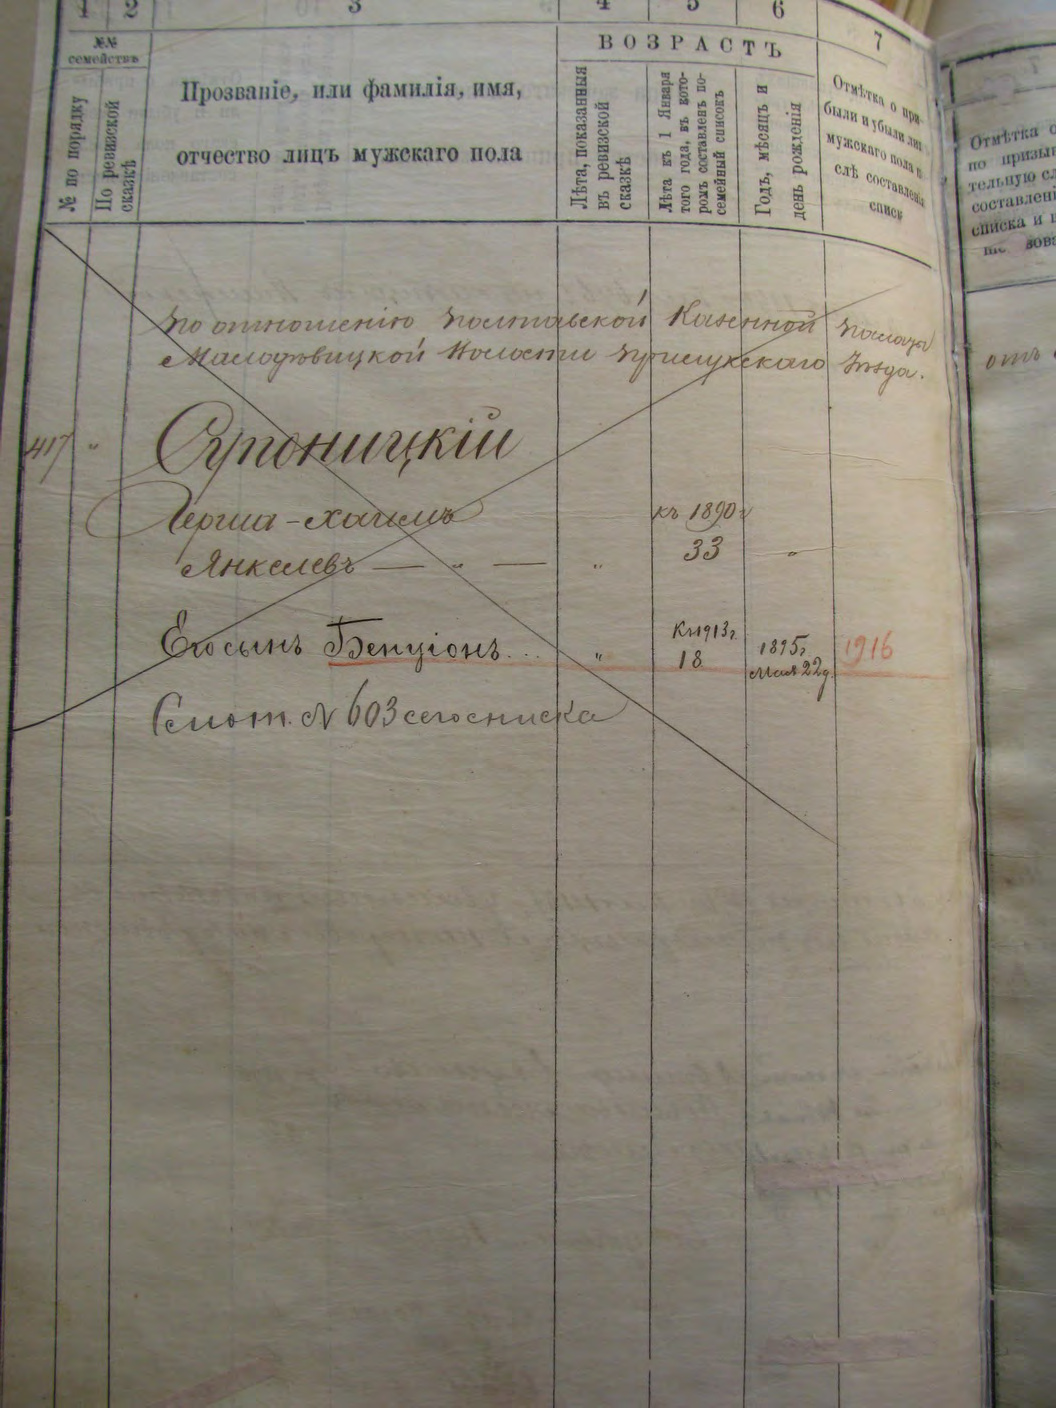 1 2 3 4 5 6 7
№№ семействъ
№ по порядку
По ревизской сказкѣ
Прозваніе, или фамилія, имя,
отчество лицъ мужскаго пола
ВОЗРАСТЪ
Лѣта, показанныя
въ ревизской
сказкѣ
Лѣта къ 1 Января
того года, въ кото-
ромъ составленъ по-
семейный списокъ
Годъ, мѣсяцъ и
день рожденія
Отмѣтка о при-
были и убыли лицъ
мужскаго пола по-
слѣ составленія
списк
Отмѣтка о
по призыв
тельную сл
составлені
списка и п
зова
По отношенію Полтавской Казенной Палаты
Волости Прилукскаго Уѣзда.
отъ
417 "
Герша-Хаимъ къ 1890 г
Янкелевъ — " — " 33 "
Его сынъ Бенціонъ... " Къ 1913 г. 18 1895 г. Мая 22 д. 1916
Смот. № 603 сего списка